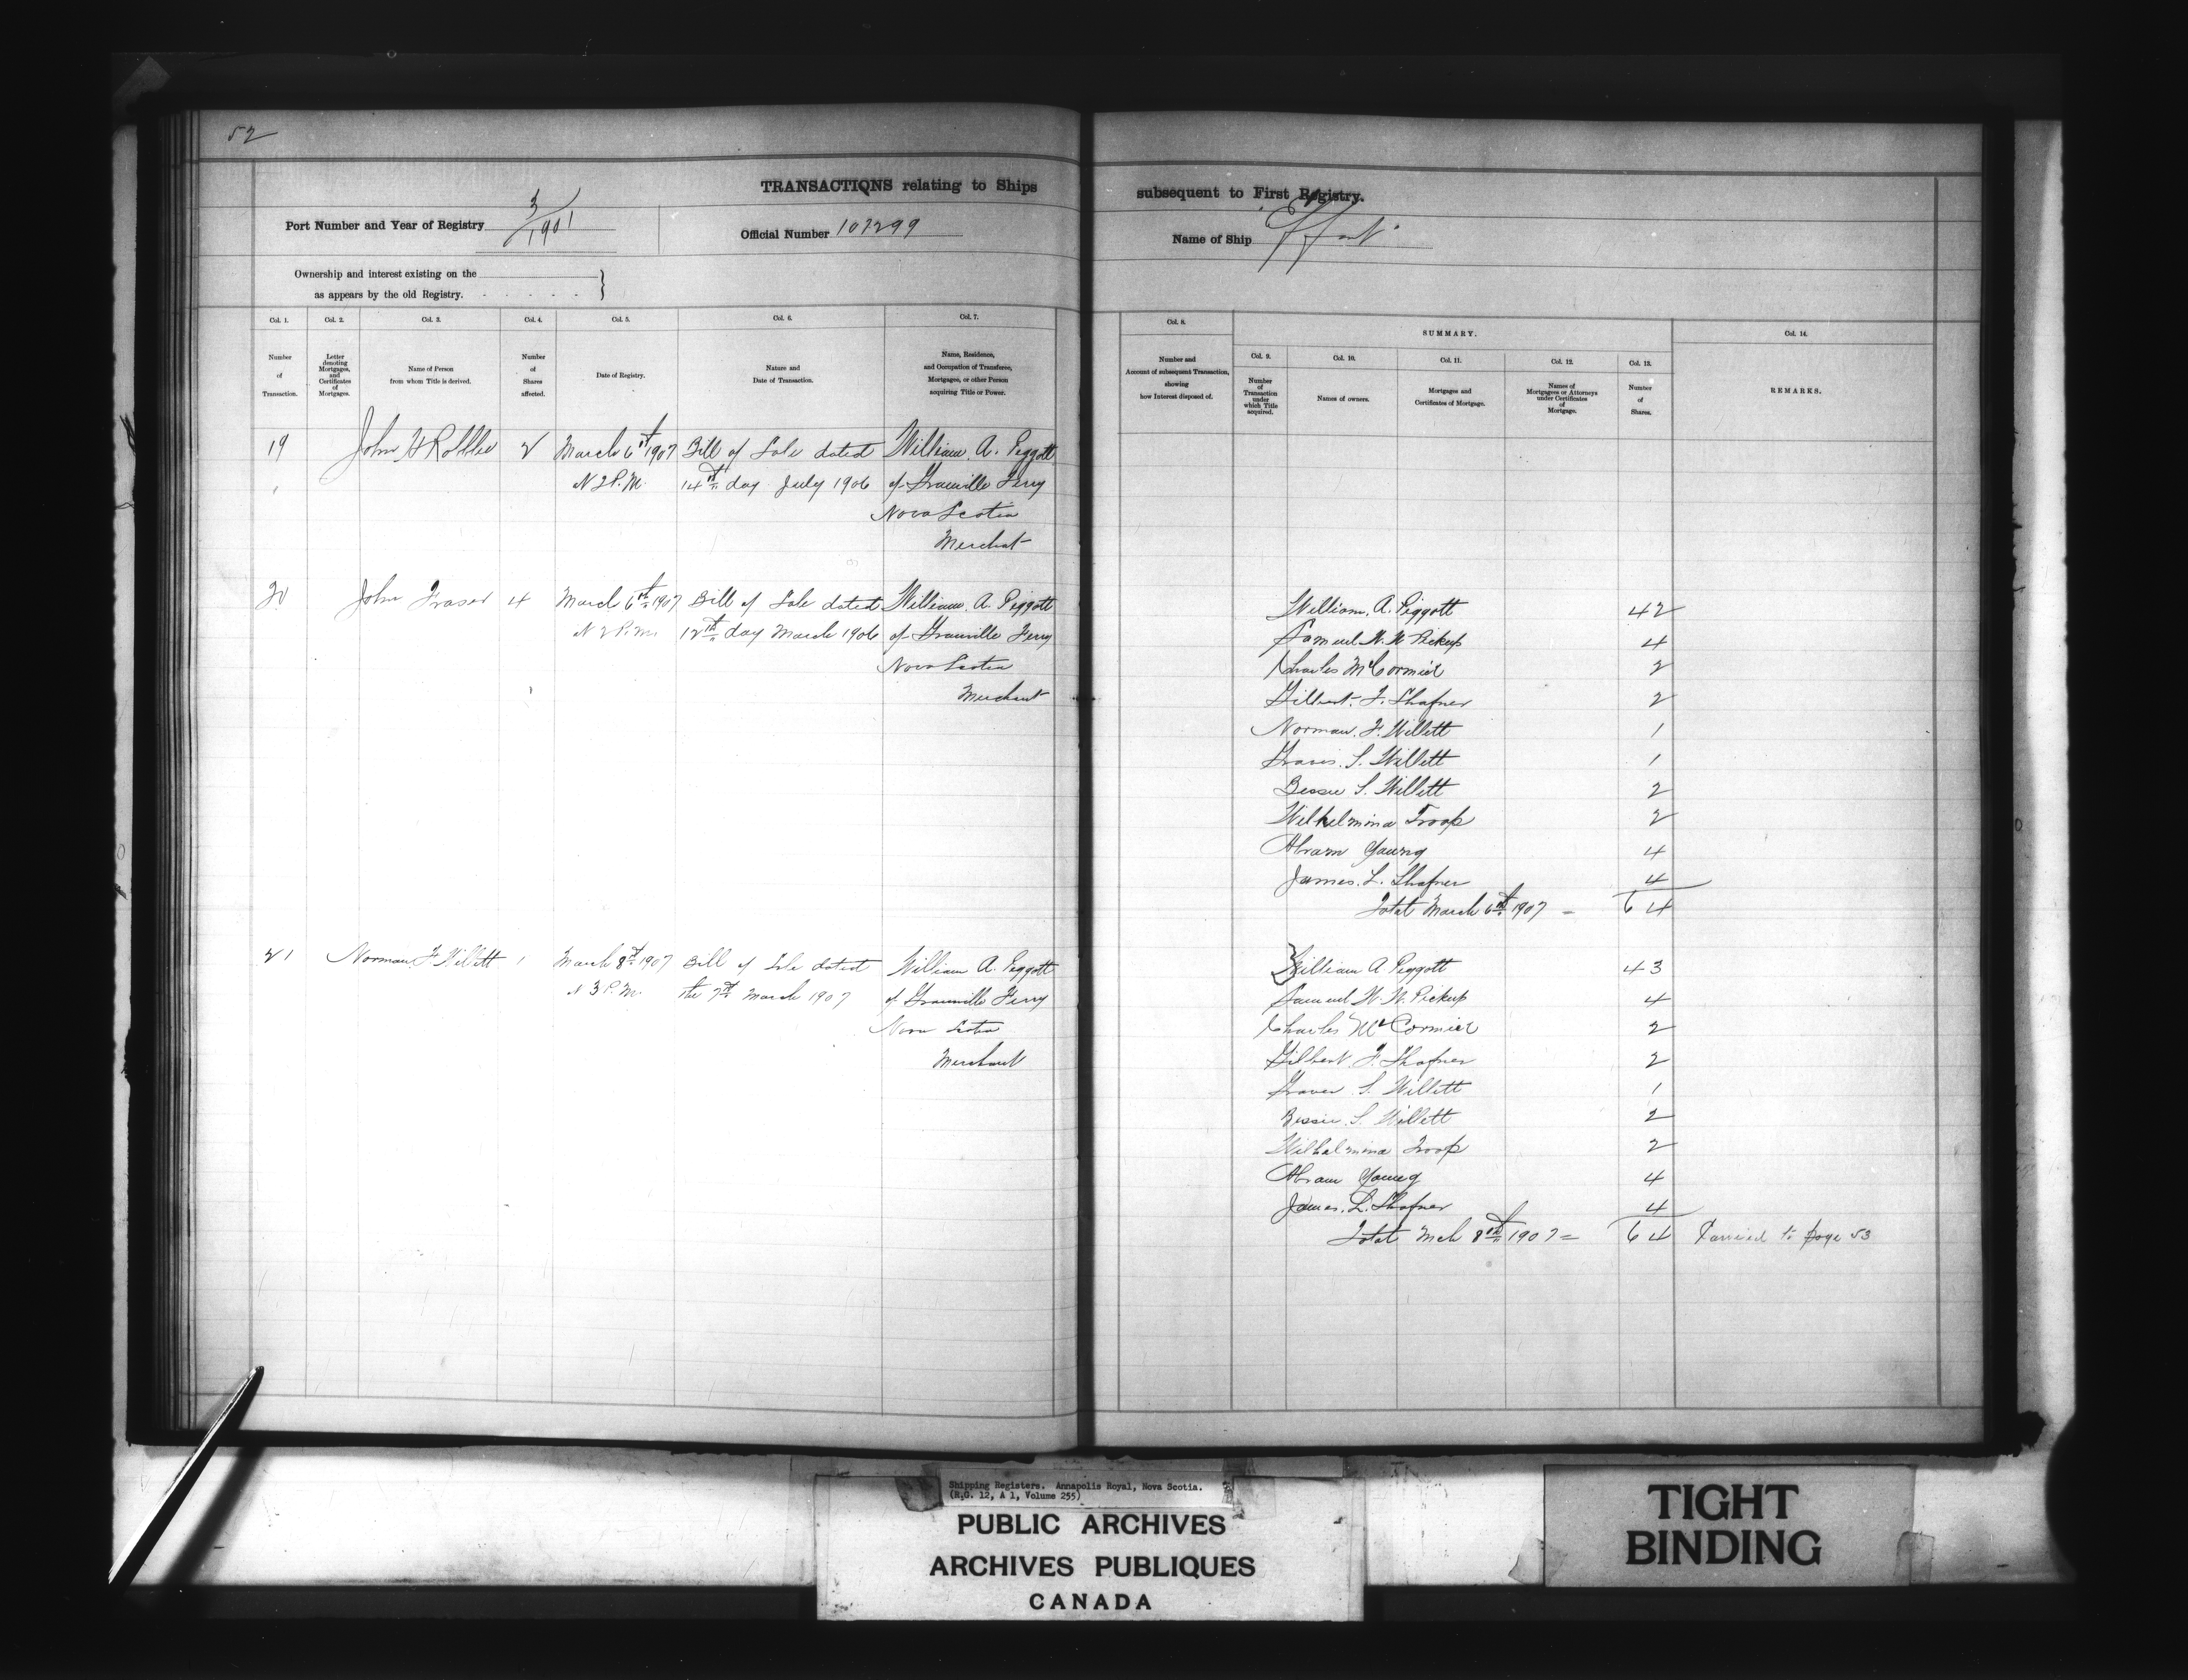 52
TRANSACTIONS relating to Ships subsequent to First Registry.
Port Number and Year of Registry 3/1901
Official Number 107299
Name of Ship "Effort"
Ownership and interest existing on the
as appears by the old Registry.
Col. 1. Col. 2. Col. 3. Col. 4. Col. 5. Col. 6. Col. 7. Col. 8. SUMMARY. Col. 14.
Col. 9. Col. 10. Col. 11. Col. 12. Col. 13.
Number of Transaction.
Letter denoting Mortgages, and Certificates of Mortgages.
Name of Person from whom Title is derived.
Number of Shares affected.
Date of Registry.
Nature and Date of Transaction.
Name, Residence, and Occupation of Transferee, Mortgagee, or other Person acquiring Title or Power.
Number and Account of subsequent Transaction, showing how Interest disposed of.
Number of Transaction under which Title acquired.
Names of owners.
Mortgages and Certificates of Mortgage.
Names of Mortgagees or Attorneys under Certificates of Mortgage.
Number of Shares.
REMARKS.
19 John H Robblee 2 March 6th 1907 Bill of Sale dated William. A. Piggott
2 P.M. 14th day July 1906 of Granville Ferry
Nova Scotia
Merchat
20 John Fraser 4 March 6th 1907 Bill of Sale dated William. A. Piggott
2 P.M. 12th day March 1906 of Granville Ferry
Nova Scotia
Merchant
William. A. Piggott 42
Samuel W. W Pickup 4
Charles McCormick 2
Gilbert. F. Shafner 2
Norman. F. Willett 1
S. Willett 1
Bessie S. Willett 2
Wilhelmina Troop 2
Abram Young 4
James. L. Shafner 4
Total March 6th 1907 = 64
21 Norman F Willett 1 March 8th 1907 Bill of Sale dated William A. Piggott
3 P.M. the 7th March 1907 of Granville Ferry
Nova Scotia
Merchant
William A Piggott 43
Samuel W. W. Pickup 4
Charles McCormick 2
Gilbert. F. Shafner 2
S. Willett 1
Bessie. S. Willett 2
Wilhelmina Troop 2
Abram Young 4
James. L. Shafner 4
Total Mch 8th 1907 = 64 Carried to page 53
Shipping Registers. Annapolis Royal, Nova Scotia.
(R.G. 12, A 1, Volume 255)
PUBLIC ARCHIVES
ARCHIVES PUBLIQUES
CANADA
TIGHT
BINDING